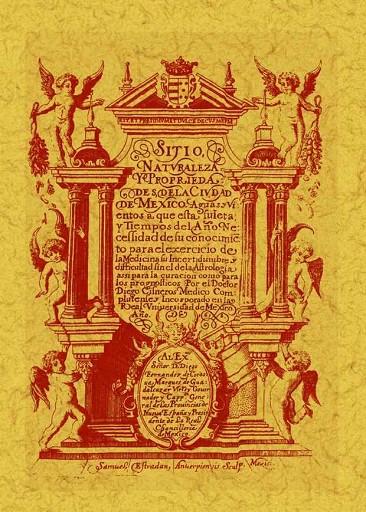 SITIO,
NATVRALEZA
Y PROPRIEDA
DES, DE LA CIVDAD
DE MEXICO. Aguas y Vi
entos a que esta suieta;
y Tiempos del Año. Ne
cessidad de su conocimie
to para el exercicio de
la Medicina su Incertidumbre y
difficultad sin el de la Astrologia
assi para la curacion como para
los prognosticos. Por el Doctor
Diego Cisneros Medico Com
plutense, Incorporado en la
Real Vniuersidad de Mexico
Año.
AL EX.
Señor D. Diego
Fernandez de Cordo
ua, Marques de Gua
dalcazar Virey Gouer
nador y Capp. Gene
ral de las Prouincias de
Nueua España y Presi
dente de la Real
Chancilleria
de Mexico
Samuel Estradan, Antuerpiensis Sculp. Mexici.